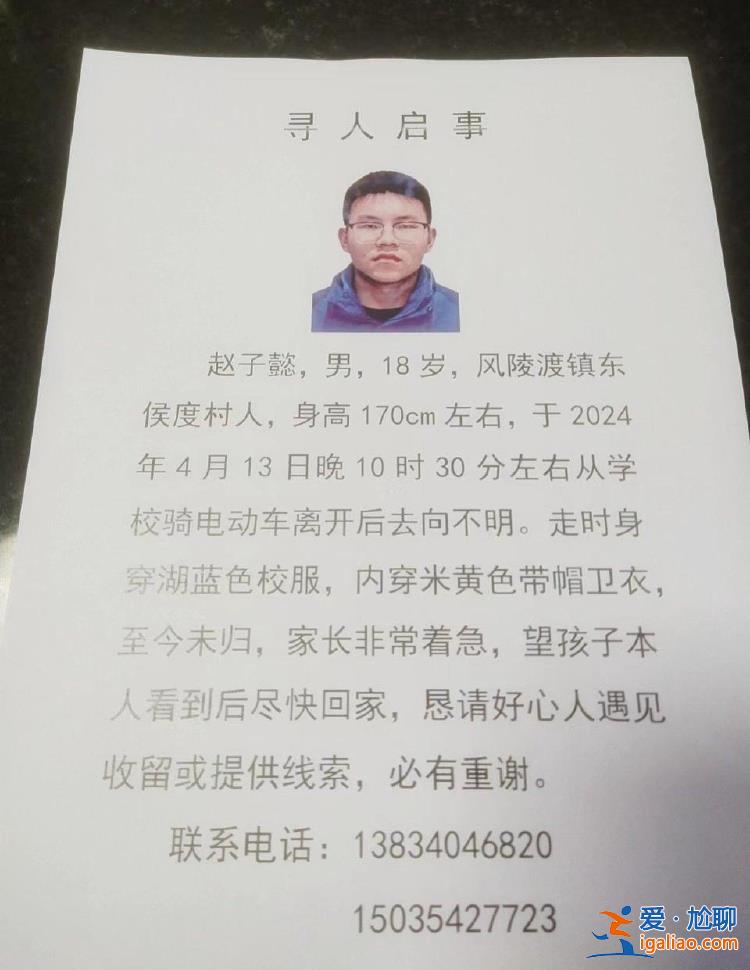 寻人启事
赵子懿，男，18岁，风陵渡镇东
侯度村人，身高170cm左右，于2024
年4月13日晚10时30分左右从学
校骑电动车离开后去向不明。走时身
穿湖蓝色校服，内穿米黄色带帽卫衣，
至今未归，家长非常着急，望孩子本
人看到后尽快回家，恳请好心人遇见
收留或提供线索，必有重谢。
联系电话：13834046820
15035427723
爱·尬聊
igaliao.com